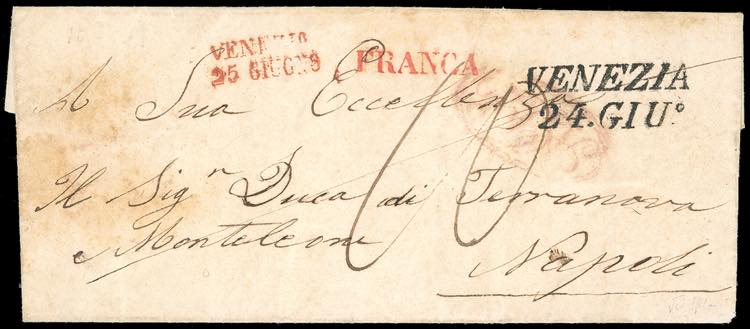 VENEZIA
25 GIUGNO
FRANCA
VENEZIA
24. GIU°
A Sua Eccellenza
Il Sigⁿ Duca di Terranova
Monteleone
Napoli